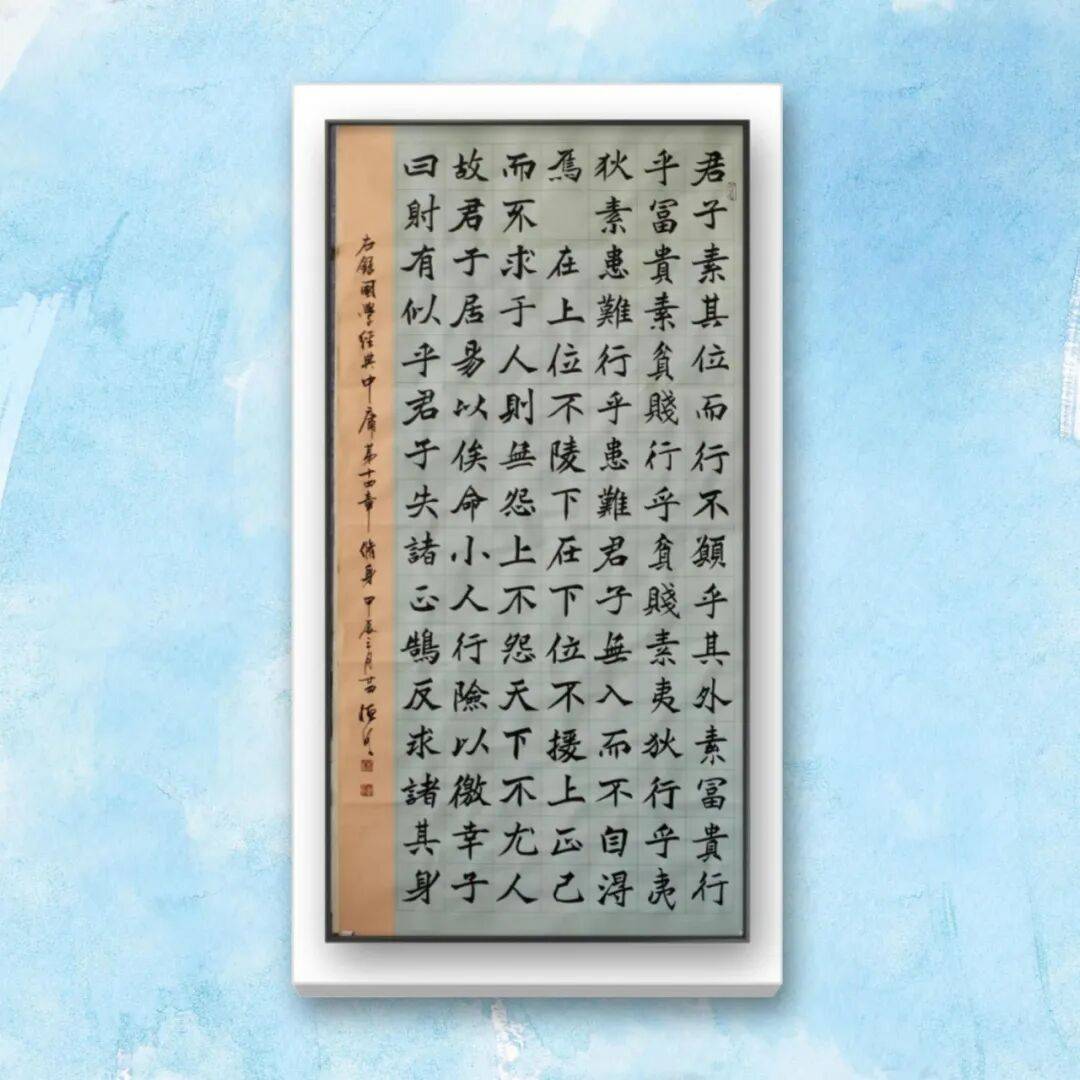 君子素其位而行不願乎其外素冨貴行
乎冨貴素貧賤行乎貧賤素夷狄行乎夷
狄素患難行乎患難君子無入而不自得
焉 在上位不陵下在下位不援上正己
而不求于人則無怨上不怨天下不尤人
故君子居易以俟命小人行險以徼幸子
曰射有似乎君子失諸正鵠反求諸其身
右錄國學經典中庸第十四章修身甲辰